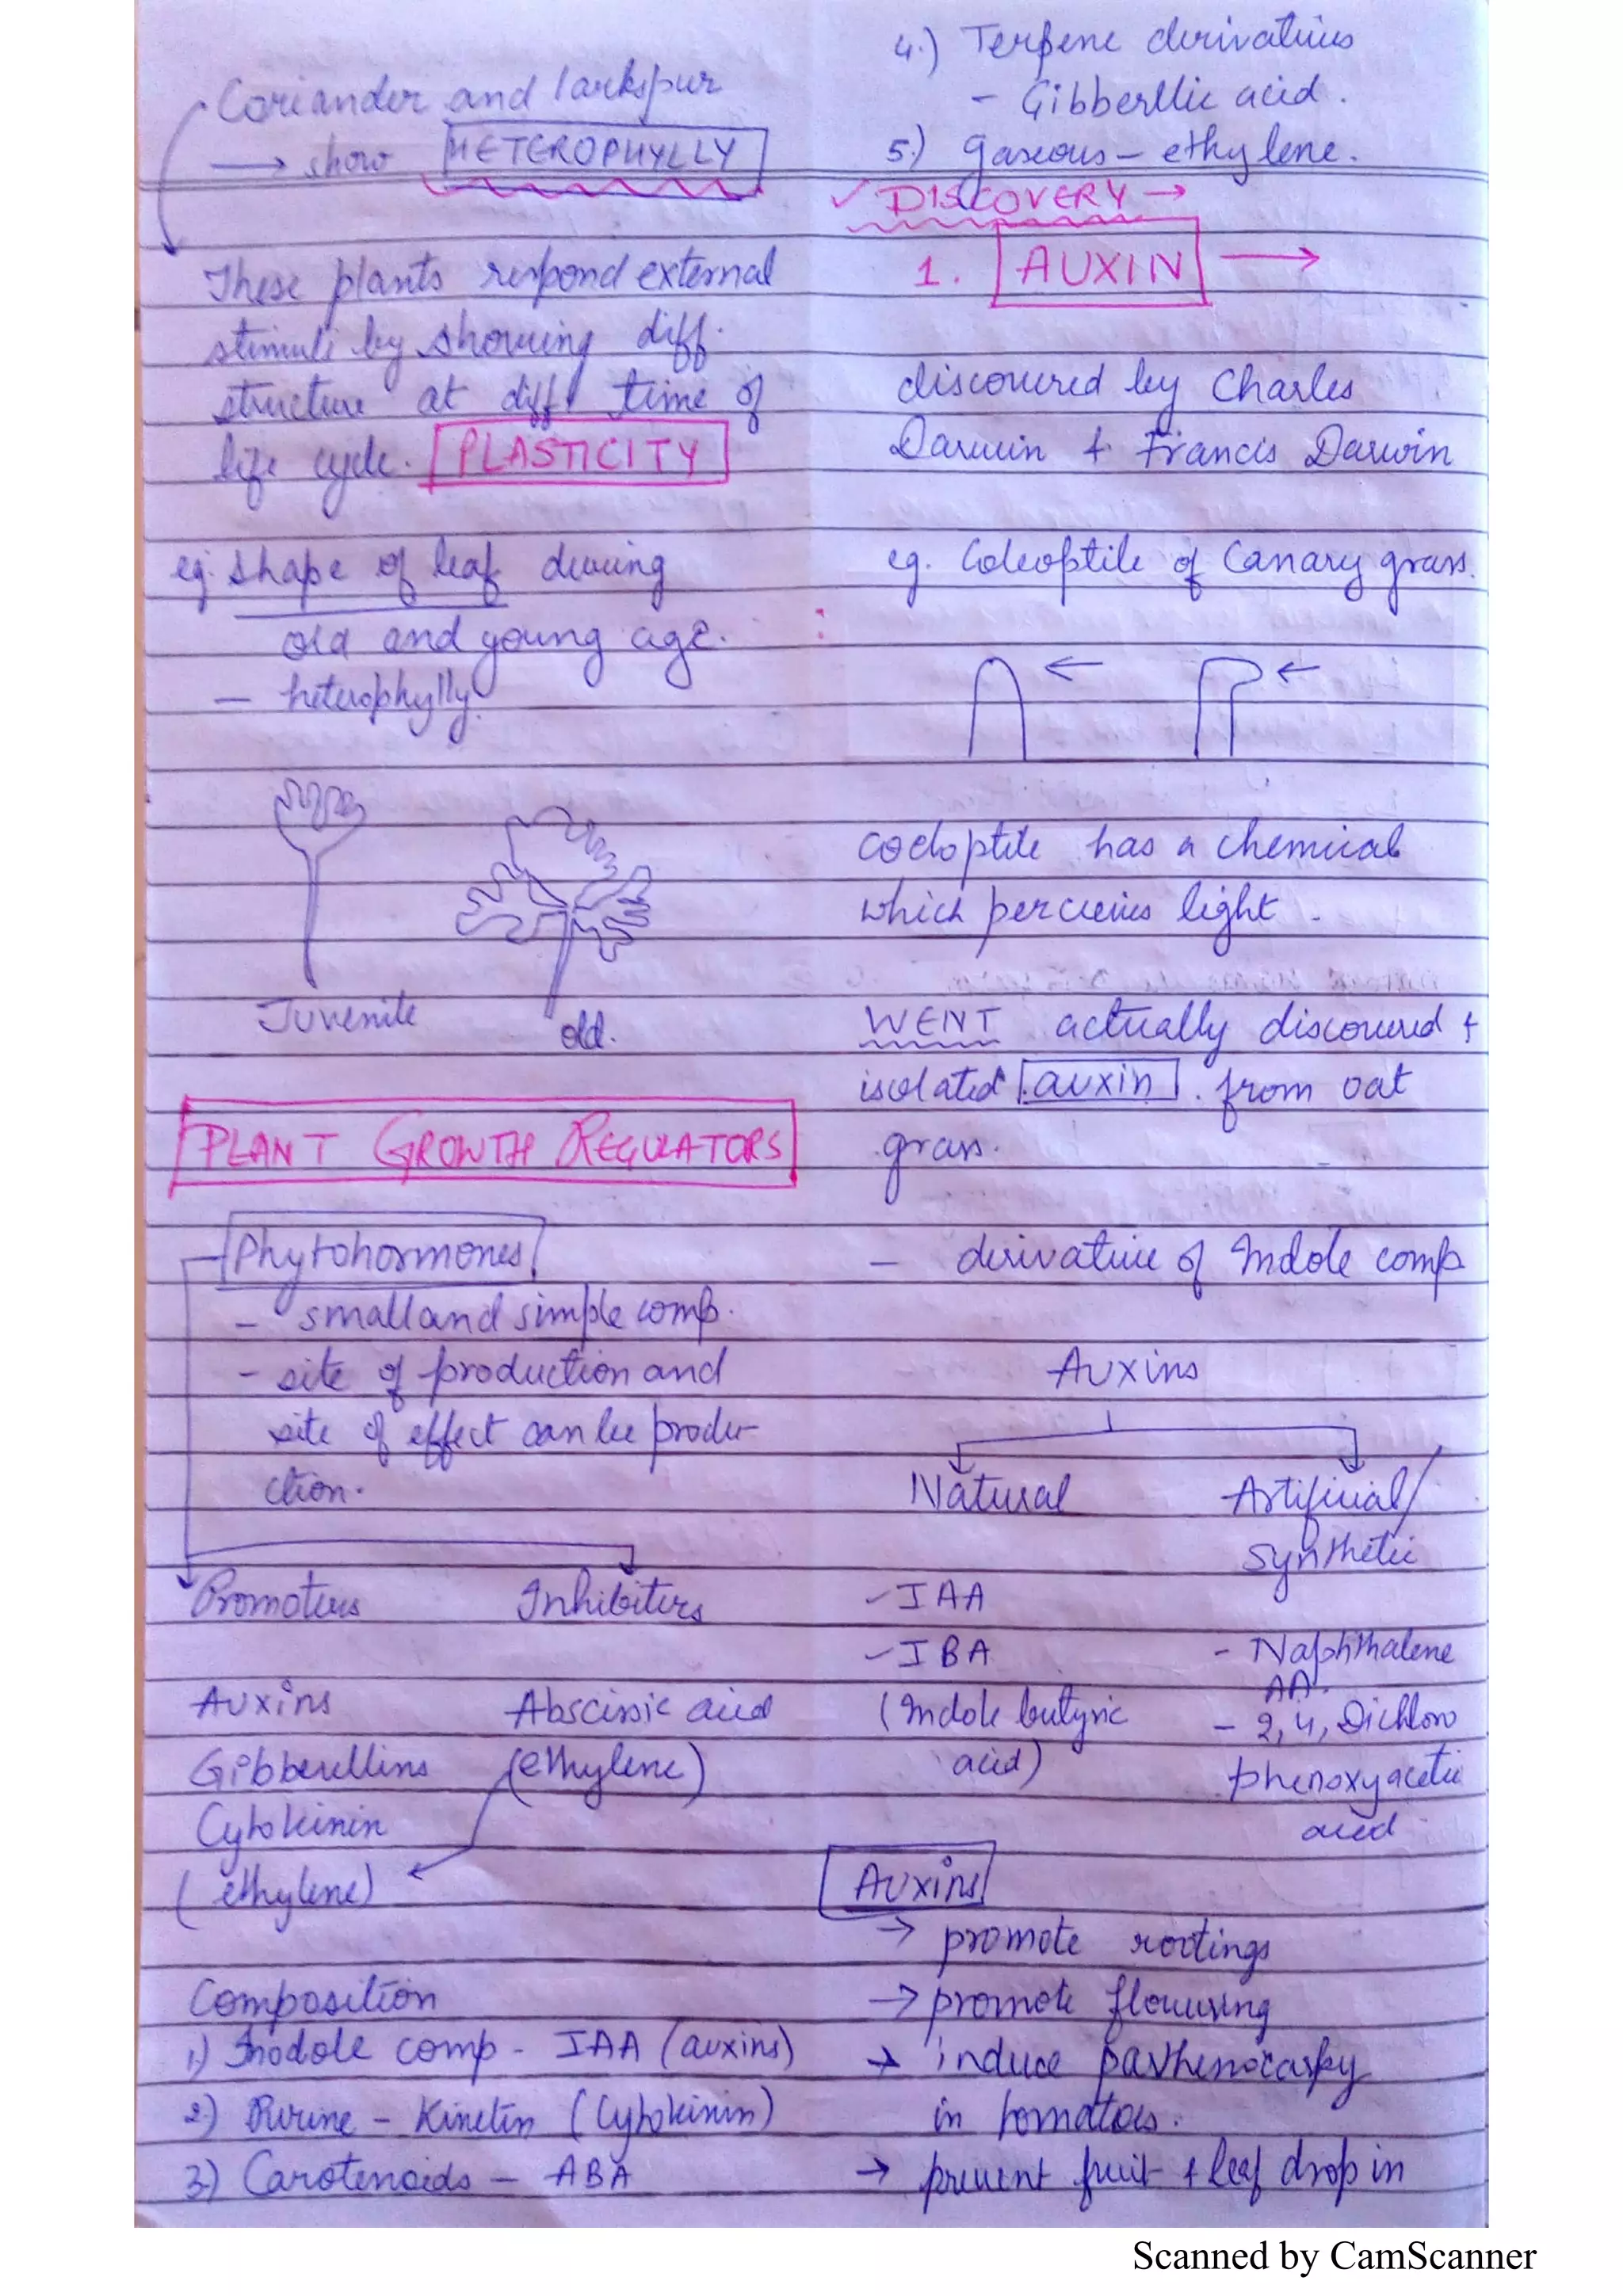 Coriander and larkspur
→ show HETEROPHYLLY
These plants respond external
stimuli by showing diff.
structure at diff time of
life cycle. PLASTICITY
eg. shape of leaf during
old and young age.
- heterophylly
Juvenile
old.
PLANT GROWTH REGULATORS
Phytohormones
- small and simple comp.
- site of production and
site of effect can be produ-
ction.
Promoters Inhibitors
Auxins Abscissic acid
Gibberellins (ethylene)
Cytokinin
(ethylene)
Composition
1) Indole comp - IAA (auxins)
2) Purine - Kinetin (Cytokinin)
3) Carotenoids - ABA
4.) Terpene derivatives
- Gibberllic acid.
5.) gaseous - ethylene.
✓ DISCOVERY →
1. AUXIN →
discovered by Charles
Darwin + Francis Darwin
eg. Coleoptile of Canary grass.
← ←
coeloptile has a chemical
which percieves light.
WENT actually discovered +
isolated auxin. from oat
grass.
- derivative of Indole comp
Auxins
Natural Artificial/
synthetic
- IAA
- IBA
(Indole butyric
acid)
- Naphthalene
AA.
- 2,4, Dichloro
phenoxyacetic
acid
Auxins
→ promote rootings
→ promote flowering
→ induce parthenocarpy
in tomatoes.
→ prevent fruit + leaf drop in
Scanned by CamScanner